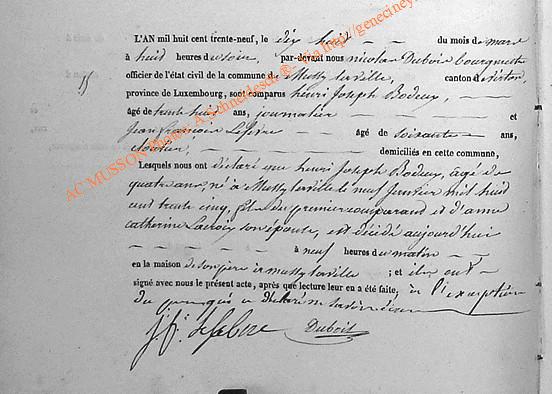 L'AN mil huit cent trente-neuf, le dix huit du mois de mars
à huit heures du soir, par-devant nous nicolas Dubois bourgmestre
officier de l'état civil de la commune de Mussy la ville, canton de virton,
15
province de Luxembourg, sont comparus henri Joseph Bodeux,
âgé de trente huit ans, journalier et
Jean francois Lefevre âgé de soixante ans,
cloutier, domiciliés en cette commune,
Lesquels nous ont déclaré que henri Joseph Bodeux, agé de
quatre ans, né à Mussy la ville le neuf Janvier mil huit
cent trente cinq, fils du premier comparant et d'anne
catherine Lacroix son épouse, est décédé aujourd'hui
à neuf heures du matin
en la maison de son père à mussy la ville ; et ils ont
signé avec nous le présent acte, après que lecture leur en a été faite, à l'exception
du père qui a déclaré ne savoir écrire
J. f. Lefebvre Dubois
AC MUSSON Photos A. Schneidesch © via http://geneciney